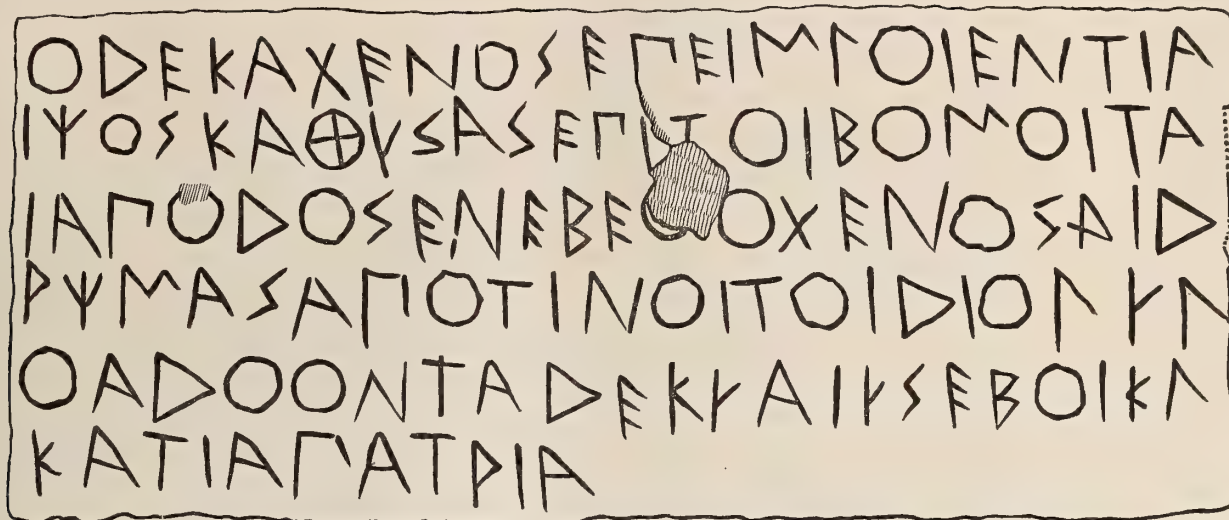 ΟΔΕΚΑΧΕΝΟΣΕΠΕΙΜΠΟΙΕΝΤΙΑ
ΙΨΟΣΚΑΘΥΣΑΣΕΠΙΤΟΙΒΟΜΟΙΤΑ
ΙΑΠΟΔΟΣΕΝΕΒΕΟΟΧΕΝΟΣΑΙΔ
ΡΨΜΑΣΑΠΟΤΙΝΟΙΤΟΙΔΙΟΛͰΛ
ΟΑΔΟΟΝΤΑΔΕΚͰΑΙͰΣΕΒΟΙΚΛ
ΚΑΤΙΑΠΑΤΡΙΑ